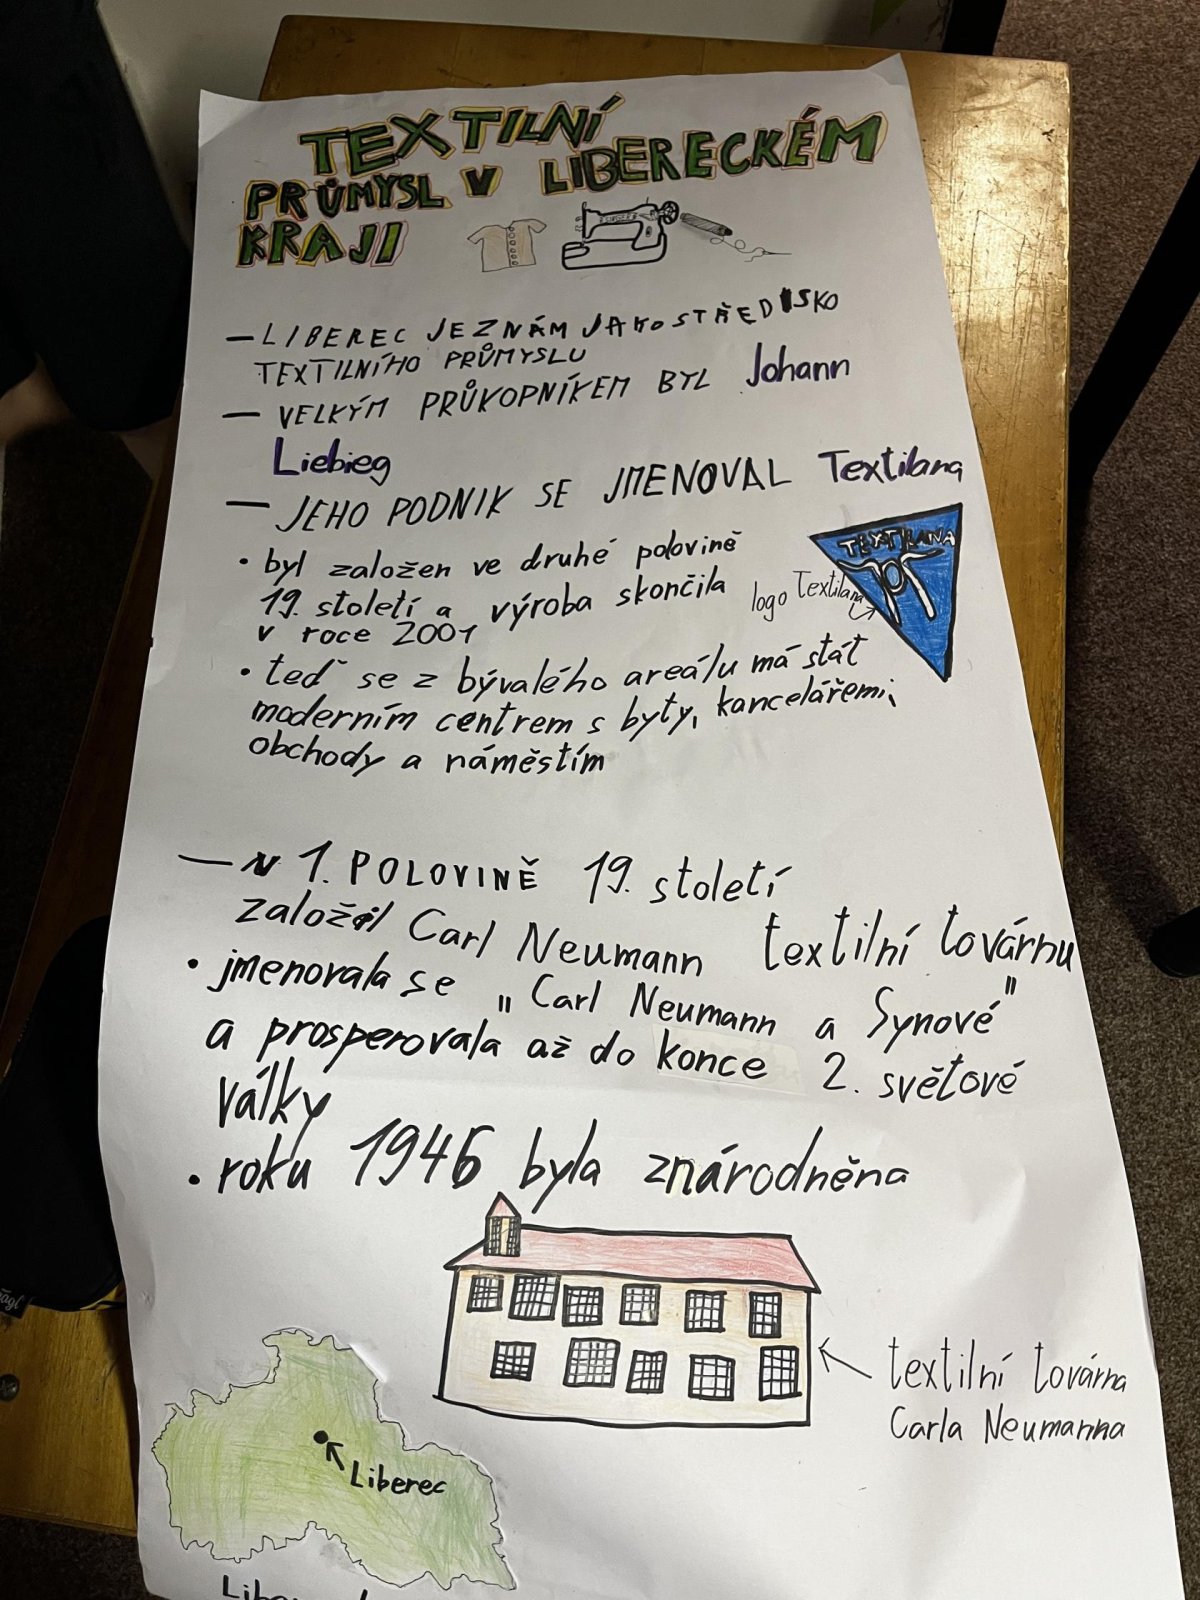 TEXTILNÍ
PRŮMYSL V LIBERECKÉM
KRAJI
SINGER
— LIBEREC JE ZNÁM JAKO STŘEDISKO
TEXTILNÍHO PRŮMYSLU
— VELKÝM PRŮKOPNÍKEM BYL Johann
Liebieg
— JEHO PODNIK SE JMENOVAL Textilana
• byl založen ve druhé polovině
19. století a výroba skončila
v roce 2001
TEXTILANA
logo Textilana
• teď se z bývalého areálu má stát
moderním centrem s byty, kancelářemi,
obchody a náměstím
— v 1. POLOVINĚ 19. století
založil Carl Neumann textilní továrnu
• jmenovala se „Carl Neumann a Synové"
a prosperovala až do konce 2. světové
války
• roku 1946 byla znárodněna
textilní továrna
Carla Neumanna
Liberec